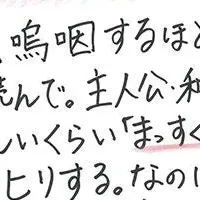 嗚咽するほど
読んで。主人公・和
しいくらい「まっすぐ
ヒリする。なのに